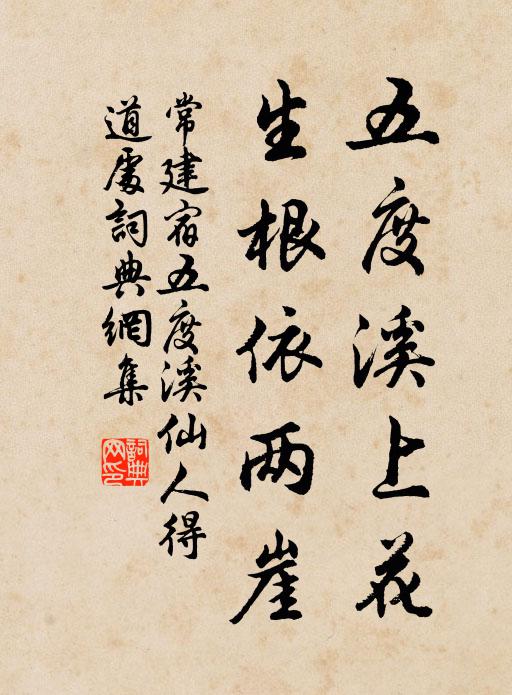 五度溪上花
生根依两崖
常建宿五度溪仙人得
道處詞典網集
詞典网印